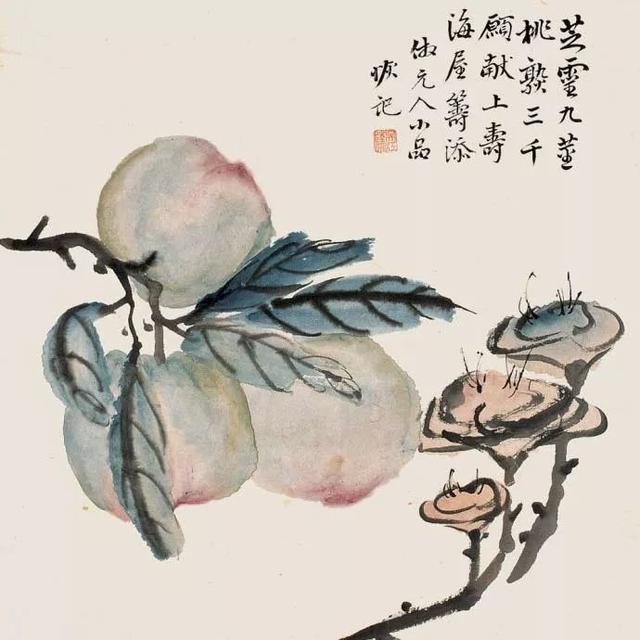 芝靈九莖
桃熟三千
願献上壽
海屋籌添
倣元人小品